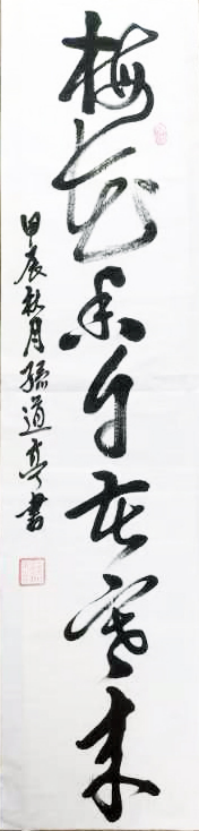 梅花香自苦寒来
甲辰秋月孫道亭書